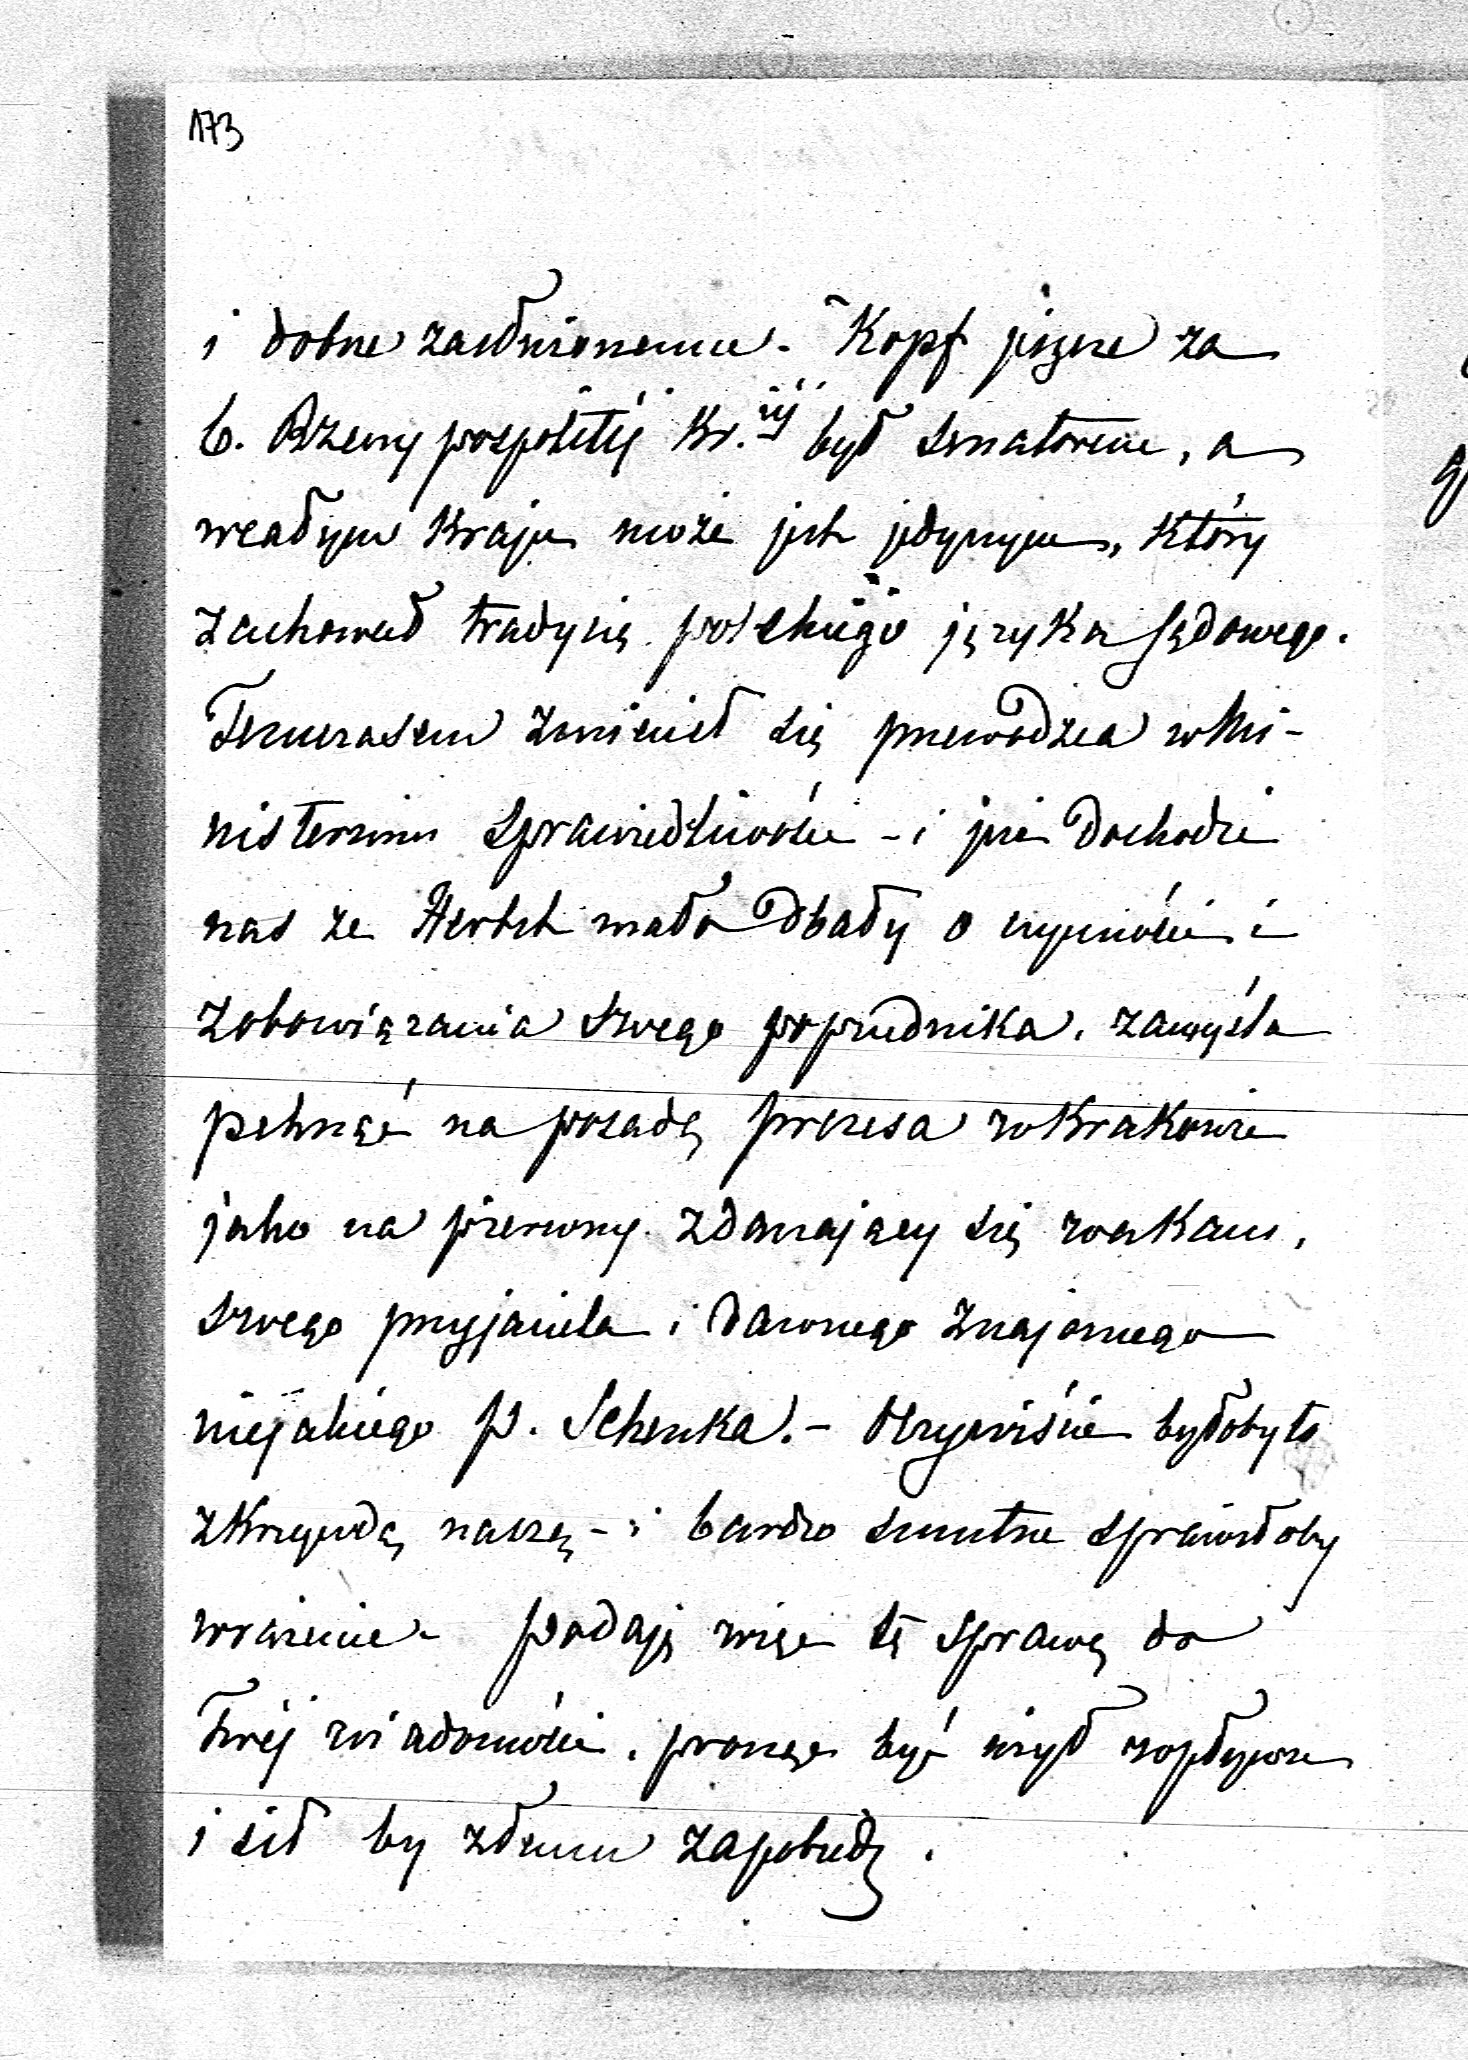 173
i dobrze zasłużonemu. Kopf jeszcze za
b. Rzeczypospolitéj Kr.iéj był senatorem, a
w całym Kraju może jest jedynym, który
zachował tradycię polskiego języka sądowego.
Tymczasem zmienił się przewódzca w Mi-
nisterium Sprawiedliwości - i już dochodzi
nas że Herbst mało dbały o czynności i
zobowiązania swego poprzednika, zamyśla
pchnąć na posadę prezesa w Krakowie
jako na pierwszy zdarzający się wakans,
swego przyjaciela i dawnego znajomego
niejakiego p. Schenka. - Oczywiście byłoby to
z Krzywdą naszą - i bardzo smutne sprawiłoby
wrażenie. Podaję więc tę sprawę do
Twéj wiadomości, prosząc byś użył wpływu
i sił by złemu zapobiedz.